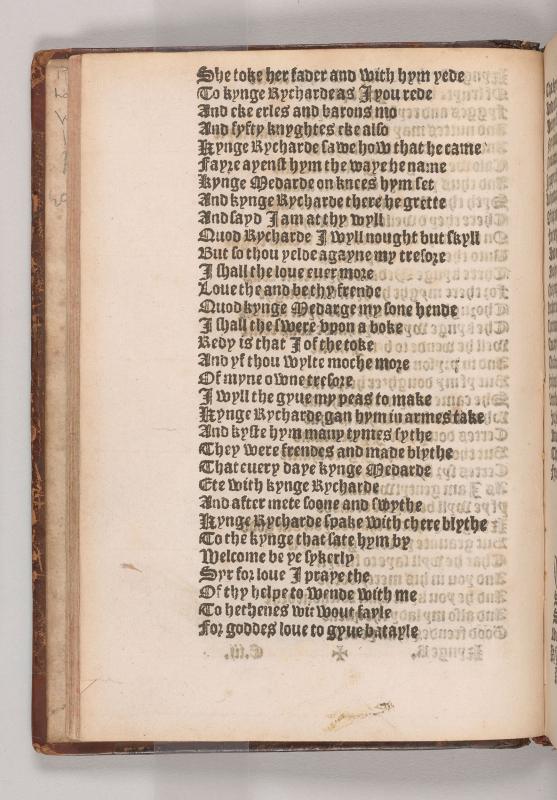 She toke her fader and with hym yede
To kynge Rycharde as I you rede
And eke erles and barons mo
And fyfty knyghtes eke also
Kynge Rycharde sawe how that he came
Fayre ayenst hym the waye he name
Kynge Medarde on knees hym set
And kynge Rycharde there he grette
And sayd I am at thy wyll
Quod Rycharde I wyll nought but skyll
But so thou yelde agayne my tresore
I shall the loue euer more
Loue the and be thy frende
Quod kynge Medarge my sone hende
I shall the swere vpon a boke
Redy is that I of the toke
And yf thou wylte moche more
Of myne owne tresore
I wyll the gyue my peas to make
Kynge Rycharde gan hym in armes take
And kyste hym many tymes sythe
They were frendes and made blythe
That euery daye kynge Medarde
Ete with kynge Rycharde
And after mete soone and swythe
Kynge Rycharde spake with chere blythe
To the kynge that sate hym by
Welcome be ye sykerly
Syr for loue I praye the
Of thy helpe to wende with me
To hethenes wit wout fayle
For goddes loue to gyue batayle